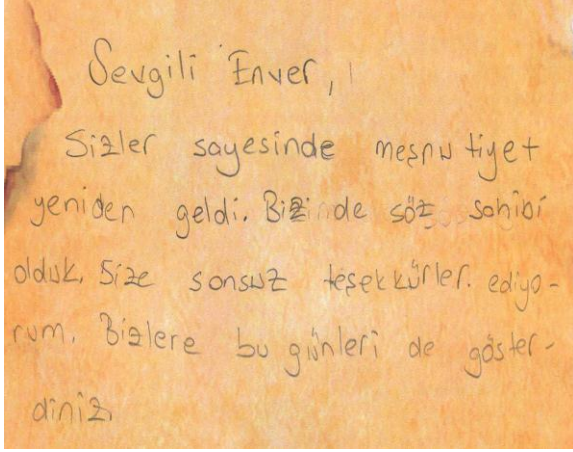 Sevgili Enver,
Sizler sayesinde meşnutiyet
yeniden geldi. Bizinde söz sahibi
olduk. Size sonsuz teşekkürler. ediyo-
rum. Bizlere bu günleri de göster-
diniz.